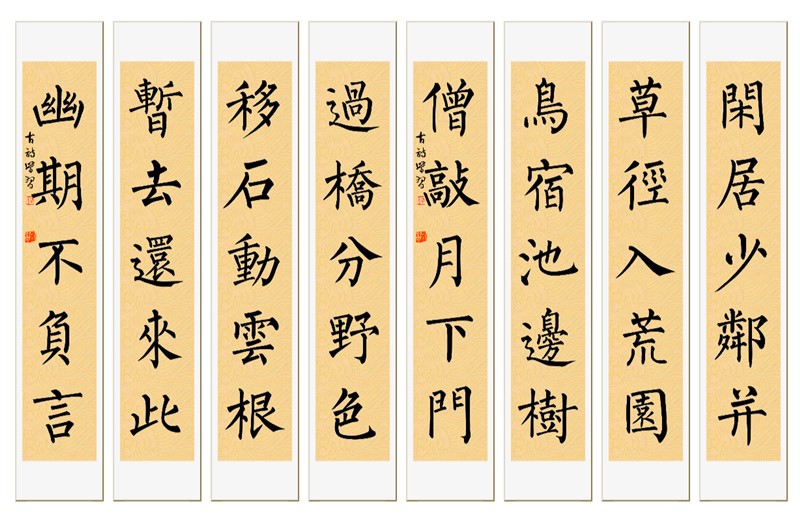 閑居少鄰并
草徑入荒園
鳥宿池邊樹
僧敲月下門
古詩學習
過橋分野色
移石動雲根
暫去還來此
幽期不負言
古詩學習